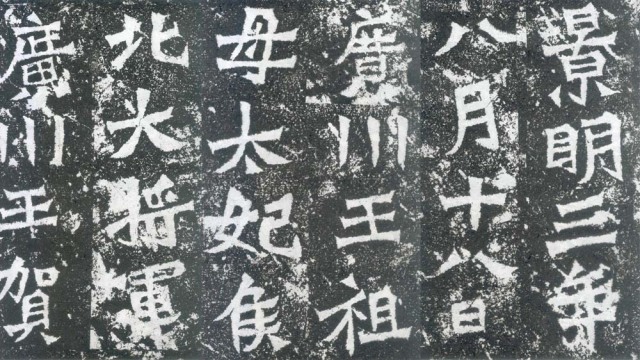 景明三年
八月十八日
廣川王祖
母太妃侯
北大將軍
廣川王賀